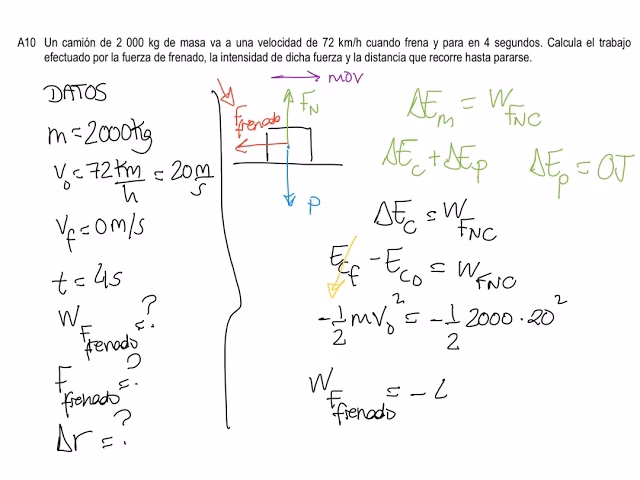 A10 Un camión de 2 000 kg de masa va a una velocidad de 72 km/h cuando frena y para en 4 segundos. Calcula el trabajo
efectuado por la fuerza de frenado, la intensidad de dicha fuerza y la distancia que recorre hasta pararse.
DATOS
m = 2000Kg
V₀ = 72 Km/h = 20 m/s
V_f = 0 m/s
t = 4s
W_F frenado = ?
F frenado = ?
Δr = ?
MOV
F_N
F frenado
P
ΔE_m = W_FNC
ΔE_c + ΔE_p
ΔE_p = 0J
ΔE_c = W_FNC
E_cf - E_c0 = W_FNC
-1/2 mV₀² = -1/2 2000 · 20²
W_F frenado = -